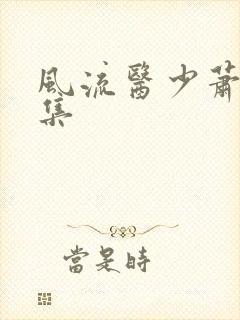 風流醫少蕭
集
當是時